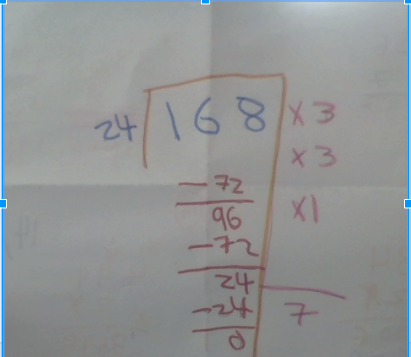 24 168 x3
x3
-72
96 x1
-72
24
-24 7
0